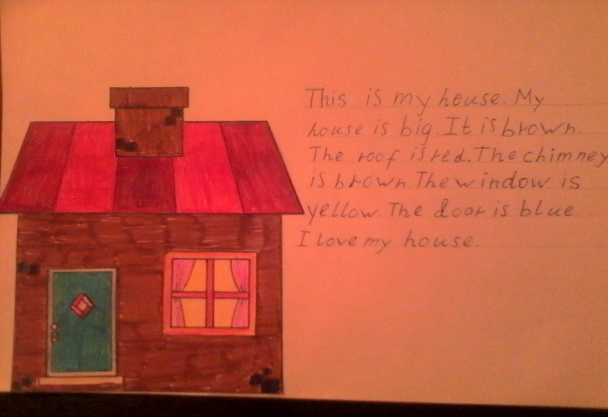 This is my house. My
house is big. It is brown.
The roof is red. The chimney
is brown. The window is
yellow. The door is blue.
I love my house.